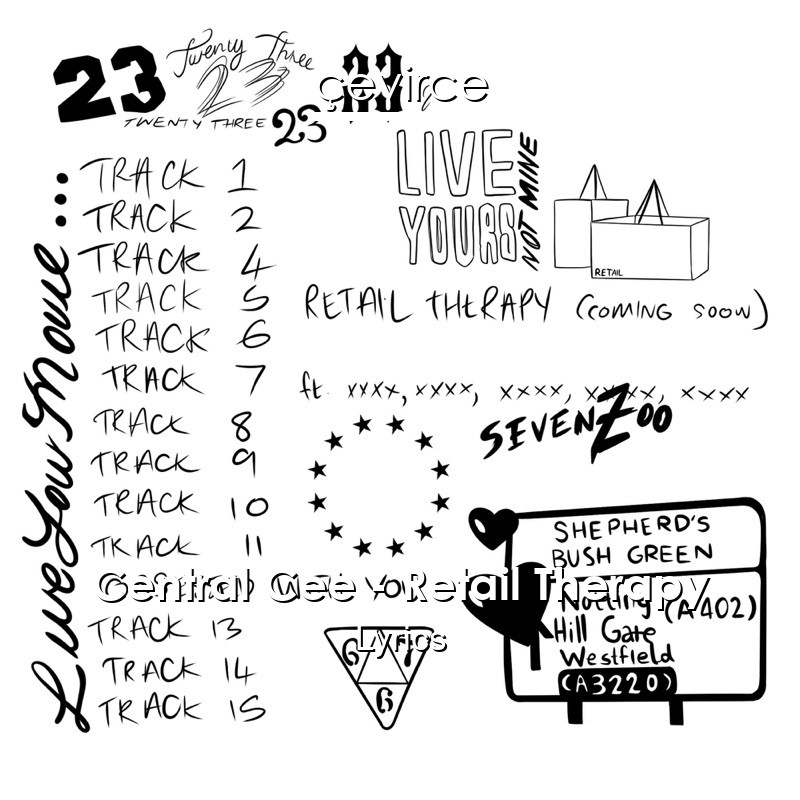 23 Twenty Three 23 23
çevirce
TWENTY THREE 23
LIVE
YOURS
NOT MINE
RETAIL
RETAIL THERAPY (COMING SOON)
ft. xxxx, xxxx, xxxx, xxxx, xxxx
SEVEN Zoo
LiveYourMovie...
TRACK 1
TRACK 2
TRACK 4
TRACK 5
TRACK 6
TRACK 7
TRACK 8
TRACK 9
TRACK 10
TRACK 11
Central Cee - Retail Therapy
Lyrics
TRACK 13
TRACK 14
TRACK 15
6 7
6
SHEPHERD'S
BUSH GREEN
Notting (A402)
Hill Gate
Westfield
(A3220)